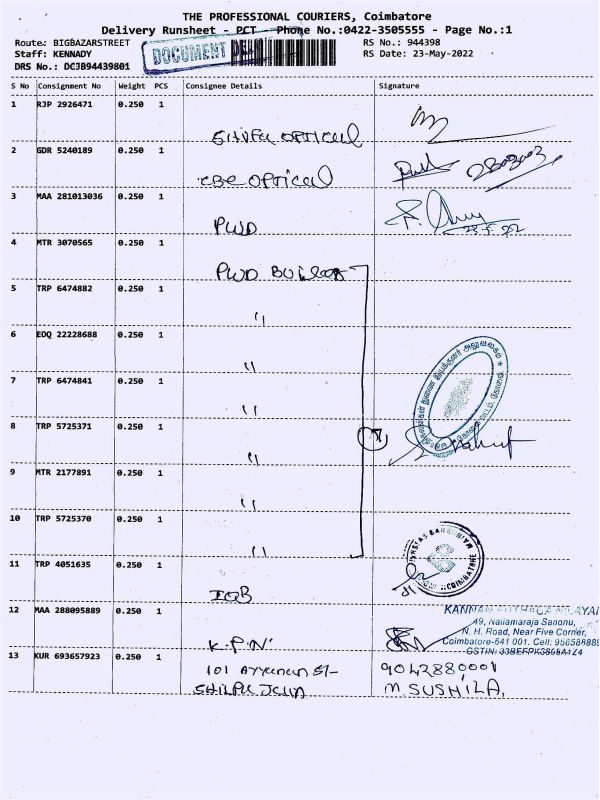 THE PROFESSIONAL COURIERS, Coimbatore
Delivery Runsheet - PCT - Phone No.:0422-3505555 - Page No.:1
Route: BIGBAZARSTREET RS No.: 944398
Staff: KENNADY DOCUMENT RS Date: 23-May-2022
DRS No.: DCJB94439801
S No Consignment No Weight PCS Consignee Details Signature
1 RJP 2926471 0.250 1
OPTICAL
2 GDR 5240189 0.250 1
CBE OPTICAL
3 MAA 281013036 0.250 1
PWD
4 MTR 3070565 0.250 1
PWD
5 TRP 6474882 0.250 1
"
6 EDQ 22228688 0.250 1
"
7 TRP 6474841 0.250 1
"
8 TRP 5725371 0.250 1
"
9 MTR 2177891 0.250 1
"
10 TRP 5725370 0.250 1
"
11 TRP 4051635 0.250 1
IOB
12 MAA 288095889 0.250 1
K.P.N
KANNAN
49, Nallamaraja Sanonu,
N. H. Road, Near Five Corner,
Coimbatore-641 001. Cell:
GSTIN:
13 KUR 693657923 0.250 1
101 9042880001
M. SUSHILA.